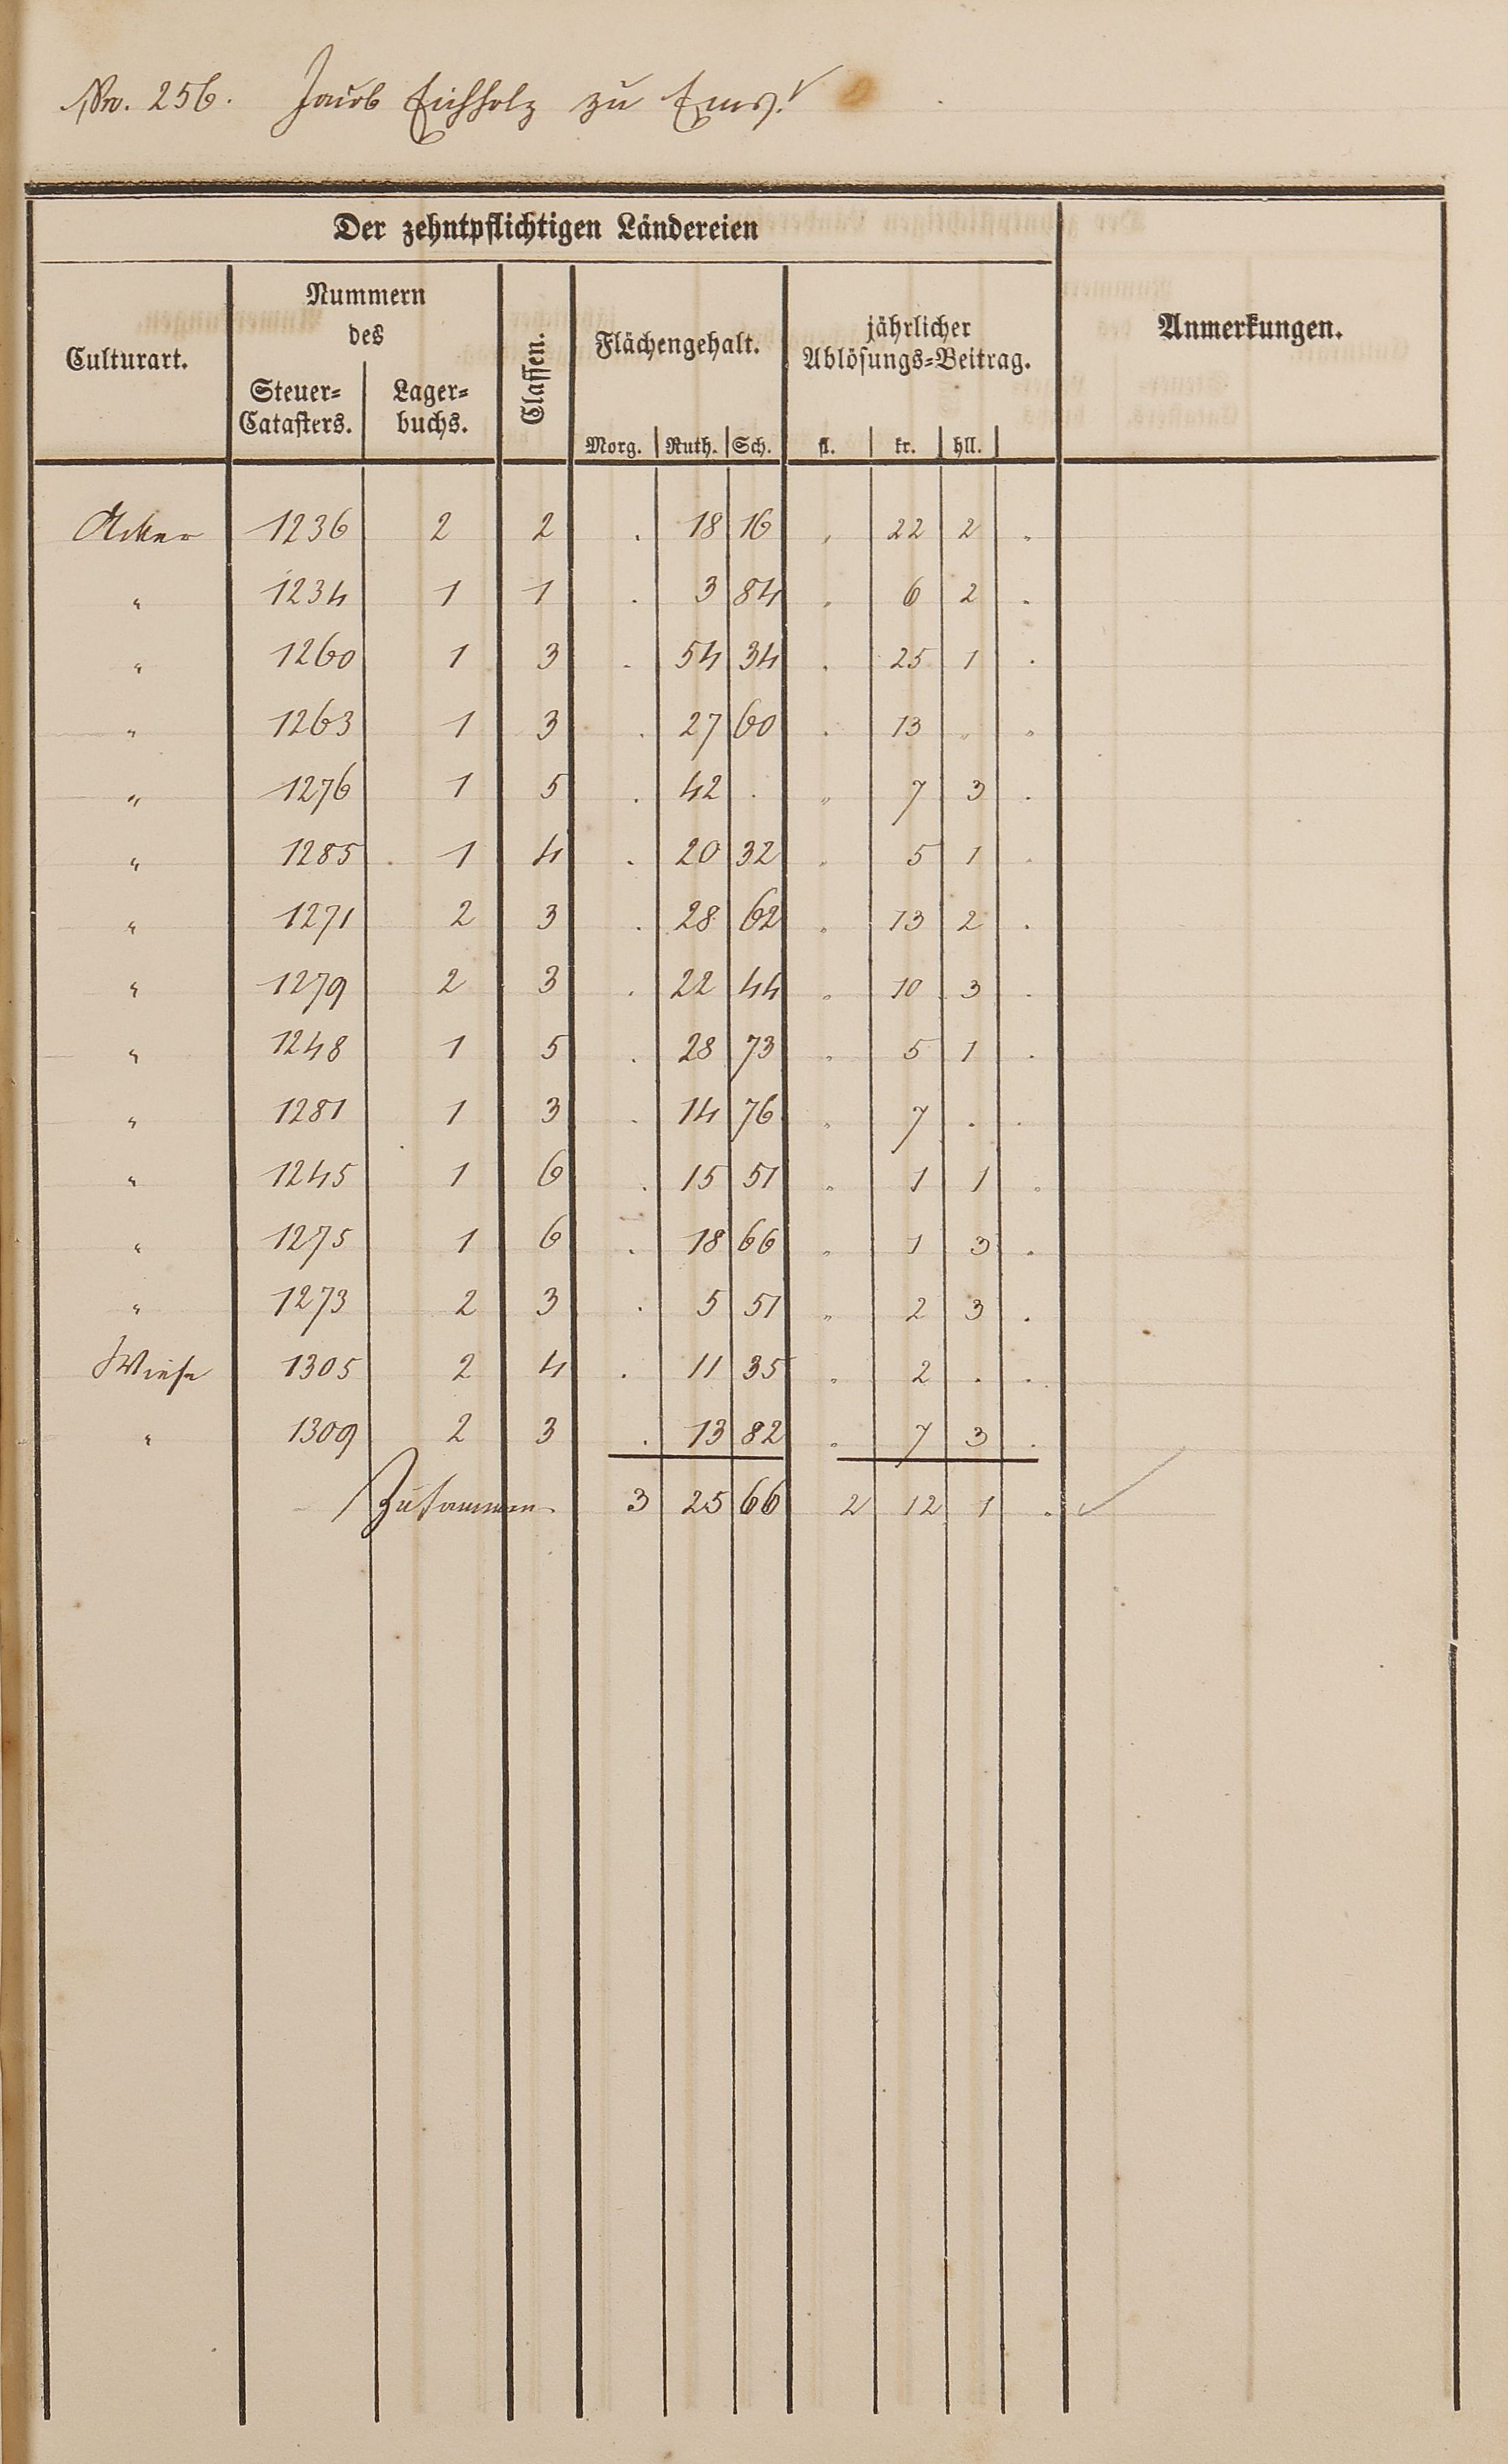 No. 256. Jacob Eichholz zu Ems.
Der zehntpflichtigen Ländereien
Culturart.
Nummern
des
Steuer-
Catasters.
Lager-
buchs.
Classen.
Flächengehalt.
Morg. Ruth. Sch.
jährlicher
Ablösungs-Beitrag.
fl. kr. hll.
Anmerkungen.
Acker 1236 2 2 . 18 16 . 22 2 .
" 1234 1 1 . 3 84 . 6 2 .
" 1260 1 3 . 54 34 . 25 1 .
" 1263 1 3 . 27 60 . 13 . .
" 1276 1 5 . 42 . . 7 3 .
" 1285 1 4 . 20 32 . 5 1 .
" 1271 2 3 . 28 62 . 13 2 .
" 1279 2 3 . 22 44 . 10 3 .
" 1248 1 5 . 28 73 . 5 1 .
" 1281 1 3 . 14 76 . 7 . .
" 1245 1 6 . 15 51 . 1 1 .
" 1275 1 6 . 18 66 . 1 3 .
" 1273 2 3 . 5 51 . 2 3 .
Wiese 1305 2 4 . 11 35 . 2 . .
" 1309 2 3 . 13 82 . 7 3 .
Zusammen 3 25 66 2 12 1 .